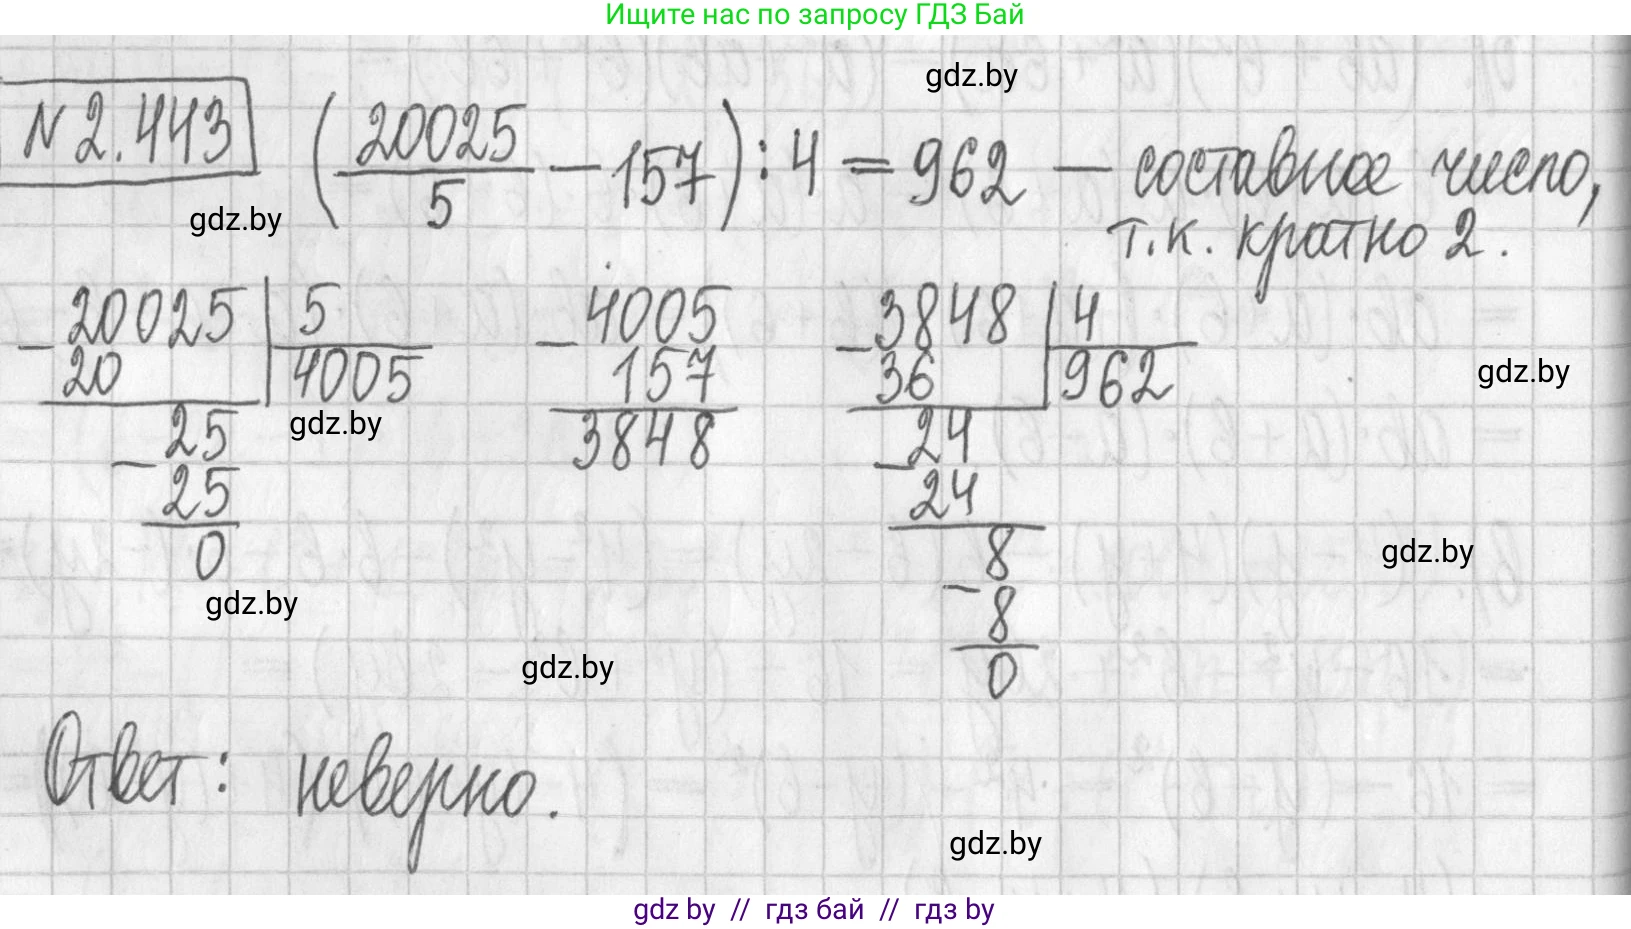 Ищите нас по запросу ГДЗ Бай
gdz.by
N 2.443 (20025/5 − 157) : 4 = 962 — составное число,
gdz.by
т.к. кратно 2.
− 20025 | 5
20 | 4005
25
− 25
0
− 4005
157
3848
− 3848 | 4
36 | 962
24
− 24
8
− 8
0
gdz.by
gdz.by
gdz.by
gdz.by
gdz.by
Ответ: неверно.
gdz.by
gdz by // гдз бай // гдз by